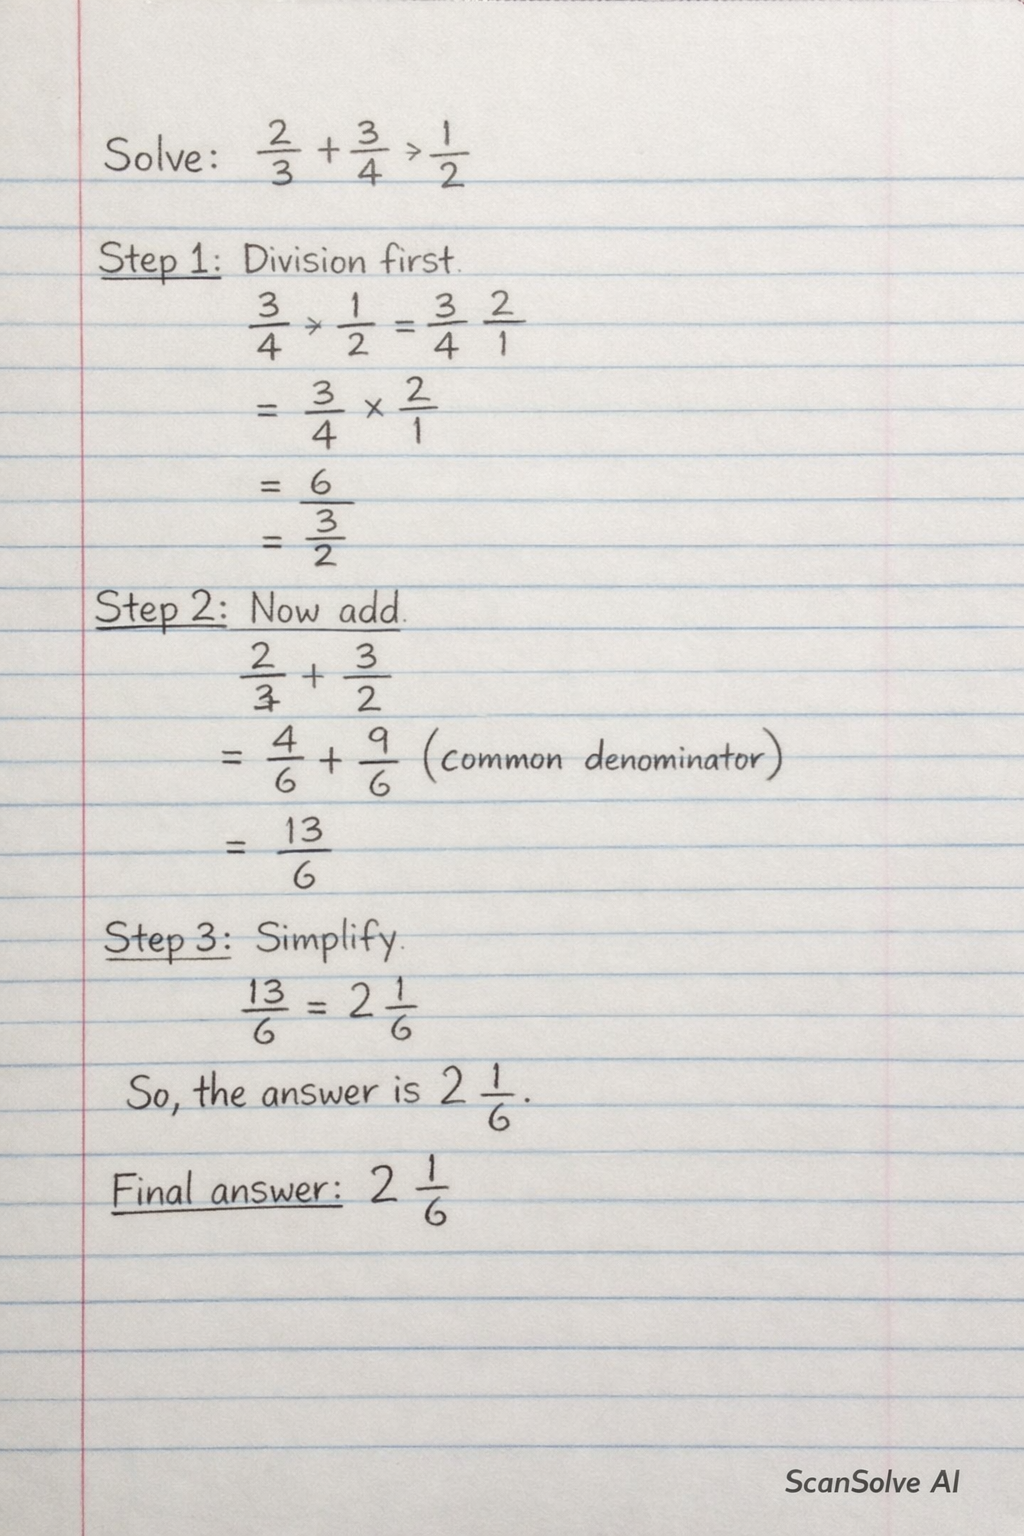 Solve: 2/3 + 3/4 > 1/2
Step 1: Division first.
3/4 > 1/2 = 3/4 2/1
= 3/4 × 2/1
= 6
= 3/2
Step 2: Now add.
2/3 + 3/2
= 4/6 + 9/6 (common denominator)
= 13/6
Step 3: Simplify.
13/6 = 2 1/6
So, the answer is 2 1/6.
Final answer: 2 1/6
ScanSolve AI